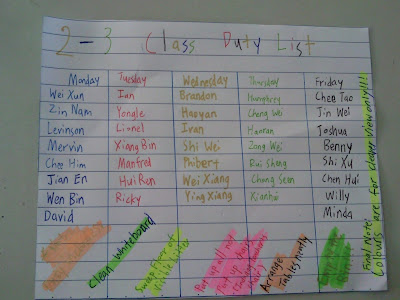 2-3 Class Duty List
Monday Tuesday Wednesday Thursday Friday
Wei Xun Ian Brandon Humphrey Chee Tao
Zin Nam Yongle Haoyan Chong Wei Jin Wei
Levinson Lionel Ivan Haoran Joshua
Mervin Xiang Bin Shi Wei Zong Wei Benny
Chee Him Manfred Philbert Rui Sheng Shi Xu
Jian En Hui Ren Wei Xiang Chong Sean Chen Hui
Wen Bin Ricky Ying Xiang Xianhui Willy
David Minda
Clean Whiteboard
Arrange
Tables neatly
Final Note:
Colours are for clearer view only!!!